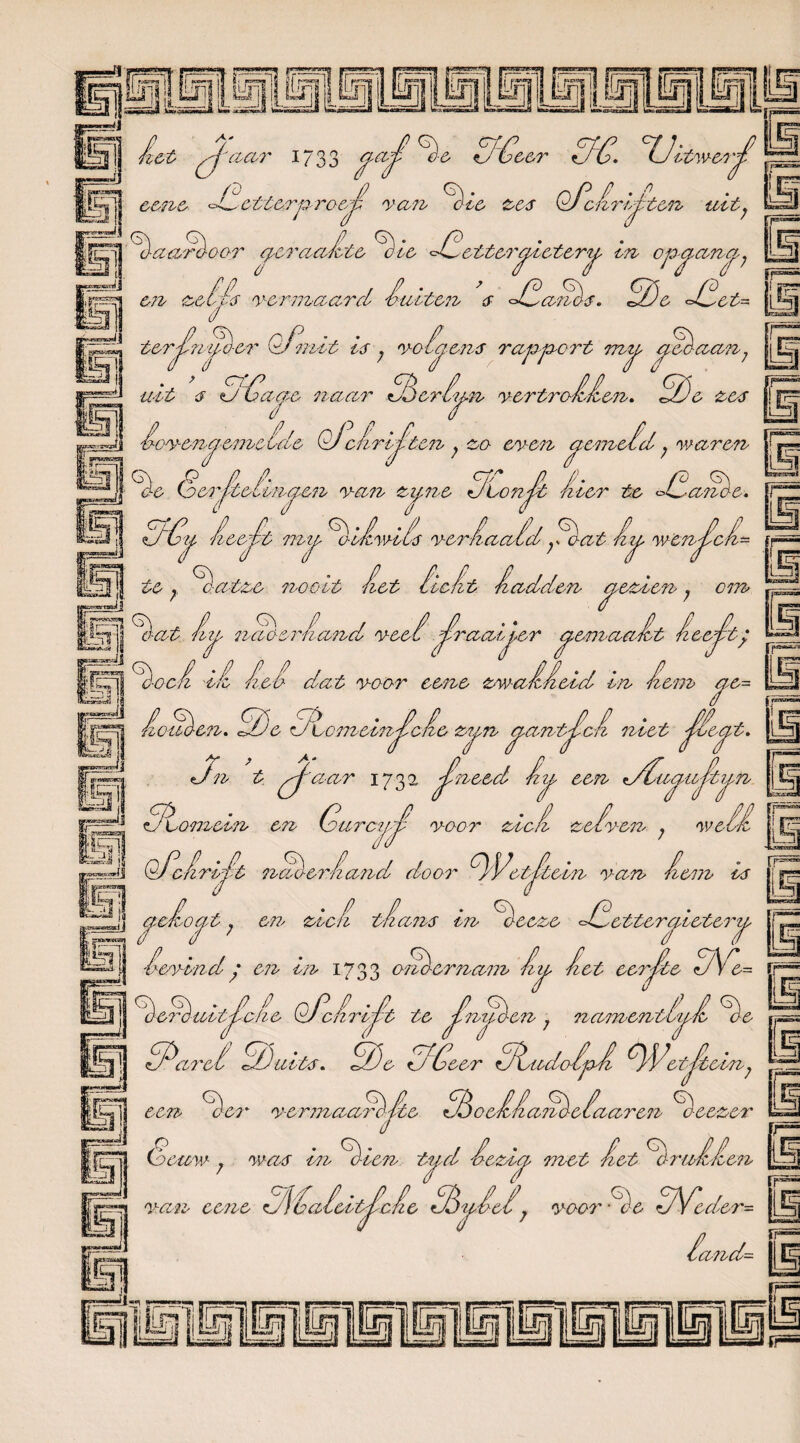 het Jaar 1733 gaf de Heer H. Uitwerf
eene Letterproef van die zes Schriften uit,
daardoor geraakte die Lettergietery in opgang,
en zelfs vermaard buiten 's Lands. De Let=
tersnyder Smit is, volgens rapport my gedaan,
uit 's Hage naar Berlyn vertrokken. De zes
bovengemelde Schriften, zo even gemeld, waren
de Eerstelingen van zyne Konst hier te Lande.
Hy heeft my dikwils verhaald, dat hy wensch=
te, datze nooit het licht hadden gezien, om
dat hy naderhand veel fraaijer gemaakt heeft;
doch ik heb dat voor eene zwakheid in hem ge=
houden. De Romeinsche zyn gantsch niet slegt.
In 't Jaar 1732 sneed hy een Augustyn
Romein en Curcyf voor zich zelven, welk
Schrift naderhand door Wetstein van hem is
gekogt, en zich thans in deeze Lettergietery
bevind; en in 1733 ondernam hy het eerste Ne=
derduitsche Schrift te snyden, namentlyk de
Parel Duits. De Heer Rudolph Wetstein,
een der vermaardste Boekhandelaaren deezer
Eeuw, was in dien tyd bezig met het drukken
van eene Maleitsche Bybel, voor de Neder=
land=